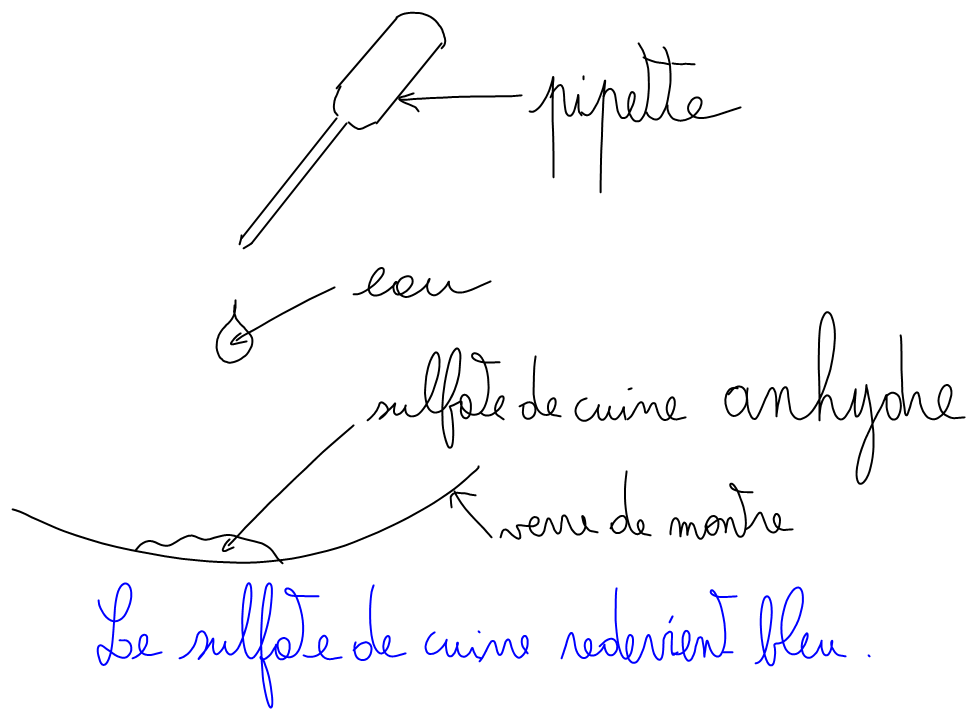 pipette
eau
sulfate de cuivre anhydre
verre de montre
Le sulfate de cuivre redevient bleu.